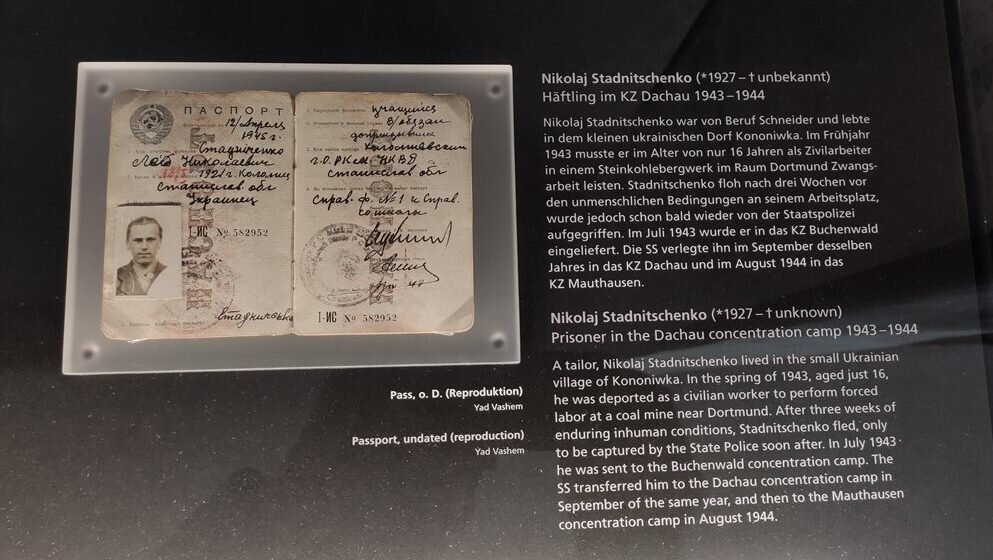 ПАСПОРТ
12/Апреля
1945 г.
Стадниченко
Лев Николаевич
1921 г. Коломия
Станислав обл
Украинец
I-ИС № 582952
Стадниченко
учащийся
В/обязан
допризывник
г.о. РКМ НКВД
Станислав обл
Справ. ф. №1 и Справ.
со школы
I-ИС № 582952
Pass, o. D. (Reproduktion)
Yad Vashem
Passport, undated (reproduction)
Yad Vashem
Nikolaj Stadnitschenko (*1927 – † unbekannt)
Häftling im KZ Dachau 1943 – 1944
Nikolaj Stadnitschenko war von Beruf Schneider und lebte
in dem kleinen ukrainischen Dorf Kononiwka. Im Frühjahr
1943 musste er im Alter von nur 16 Jahren als Zivilarbeiter
in einem Steinkohlebergwerk im Raum Dortmund Zwangs-
arbeit leisten. Stadnitschenko floh nach drei Wochen vor
den unmenschlichen Bedingungen an seinem Arbeitsplatz,
wurde jedoch schon bald wieder von der Staatspolizei
aufgegriffen. Im Juli 1943 wurde er in das KZ Buchenwald
eingeliefert. Die SS verlegte ihn im September desselben
Jahres in das KZ Dachau und im August 1944 in das
KZ Mauthausen.
Nikolaj Stadnitschenko (*1927 – † unknown)
Prisoner in the Dachau concentration camp 1943 – 1944
A tailor, Nikolaj Stadnitschenko lived in the small Ukrainian
village of Kononiwka. In the spring of 1943, aged just 16,
he was deported as a civilian worker to perform forced
labor at a coal mine near Dortmund. After three weeks of
enduring inhuman conditions, Stadnitschenko fled, only
to be captured by the State Police soon after. In July 1943
he was sent to the Buchenwald concentration camp. The
SS transferred him to the Dachau concentration camp in
September of the same year, and then to the Mauthausen
concentration camp in August 1944.